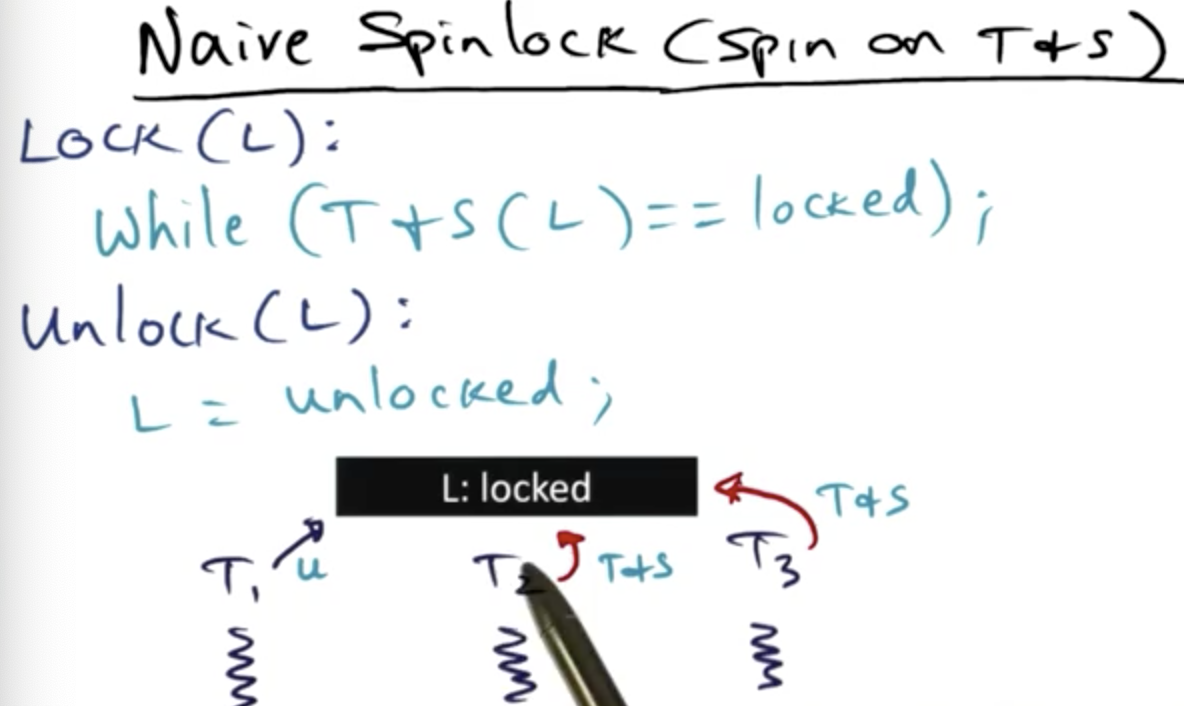 Naive Spinlock (Spin on T+S)
Lock(L):
While (T+S(L)==locked);
Unlock(L):
L = unlocked;
L: locked
T+S
T1 u T2 T+S T3